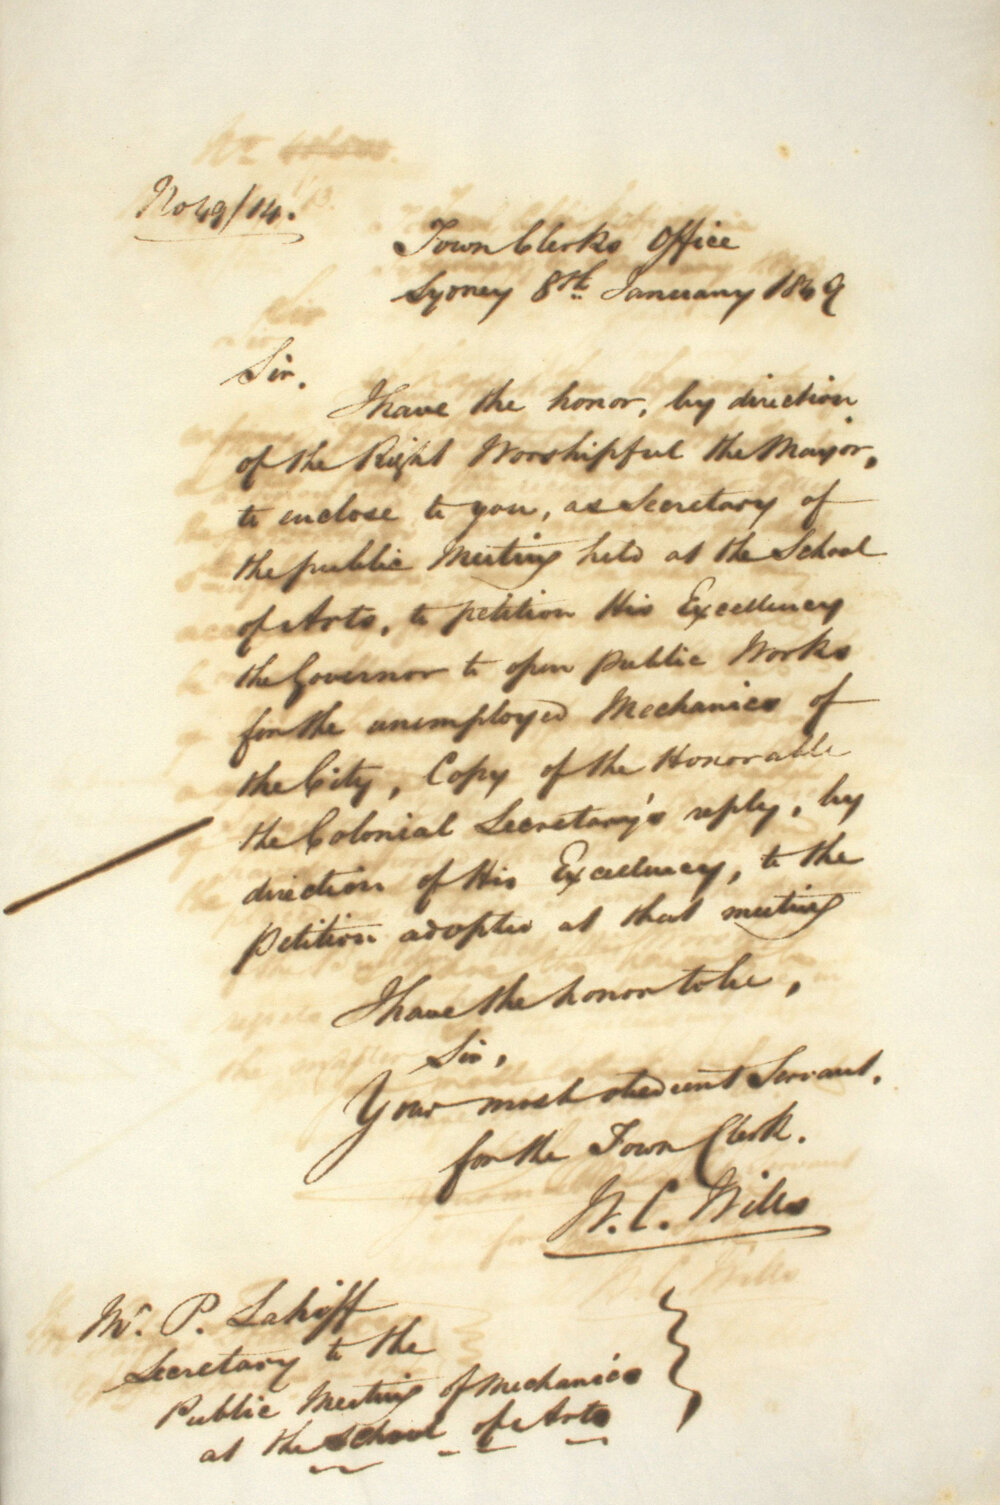 No 49/14.
Town Clerks Office
Sydney 8th January 1849
Sir.
I have the honor, by direction
of the Right Worshipful the Mayor,
to enclose to you, as Secretary of
the public Meeting held at the School
of Arts, to petition His Excellency
the Governor to open Public Works
for the unemployed Mechanics of
the City, Copy of the Honorable
the Colonial Secretary's reply, by
direction of His Excellency, to the
Petition adopted at that meeting
I have the honor to be,
Sir,
Your most obedient Servant.
for the Town Clerk.
W. C. Wills
Mr. P.
Secretary to the
Public Meeting of Mechanics
at the School of Arts